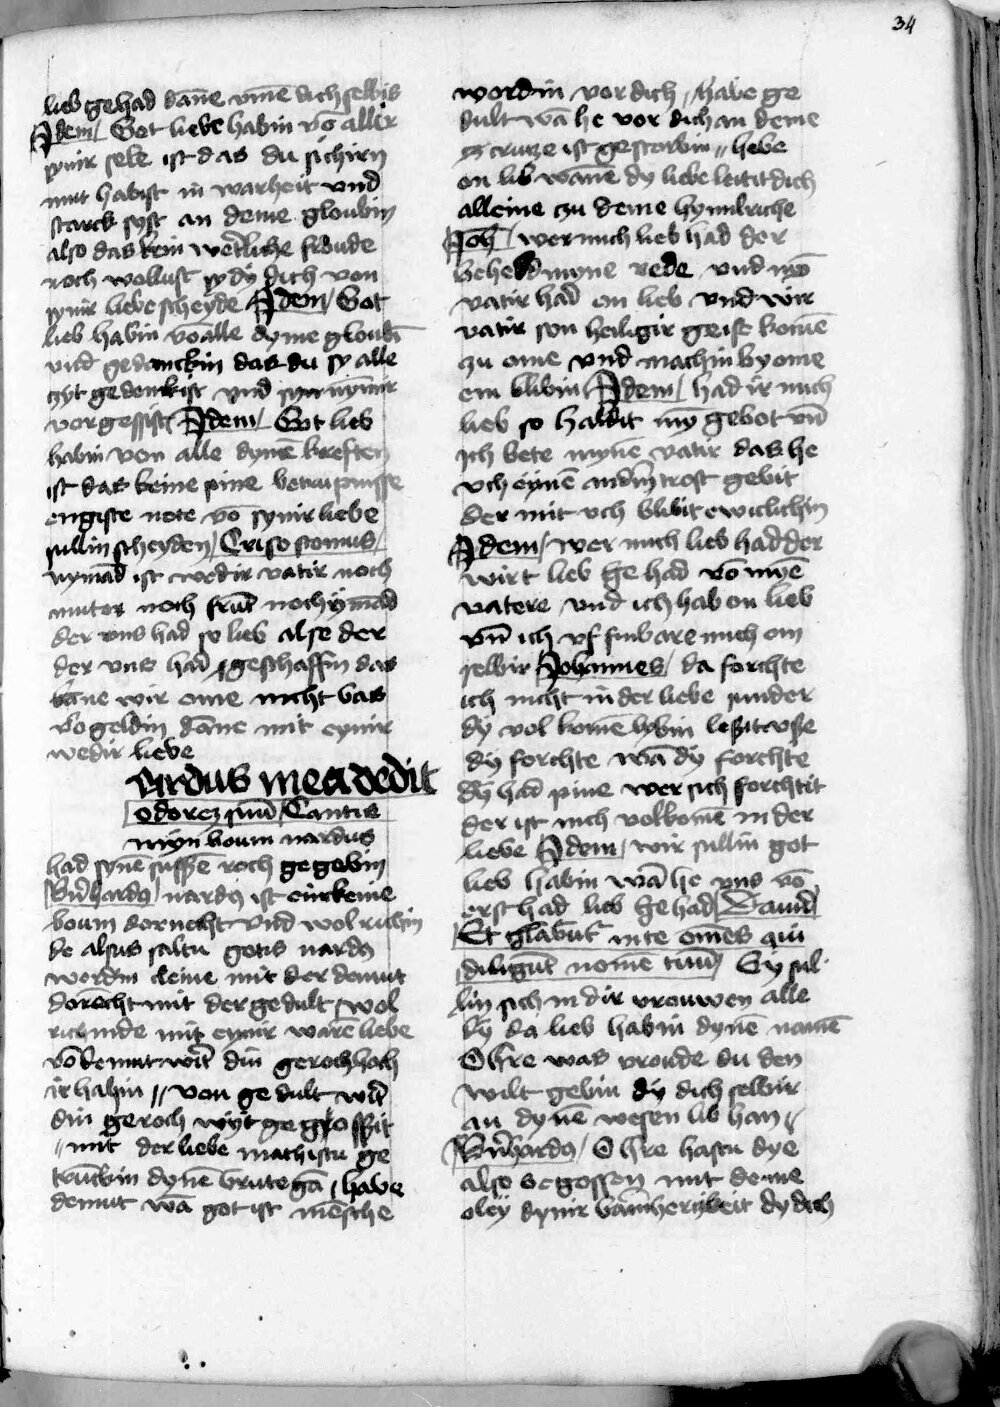 34
lieb gehad dāne vmē dich selbis
Idem Got liebe habin vō aller
synir sele ist das du sichirn
mut habist in warheit vnd
starck syst an deme gloubin
also das kein wertliche froude
noch wollust sy dy dich von
synir liebe scheyde Idem Got
lieb habin vō alle dyme gloubī
vnd gedanckin das du sy alle
zyt gedenkist vnd syn nymir
vorgessist Idem Got lieb
habin von alle dymē kreften
ist das keine pine betrupnisse
engiste note vō synir liebe
sullin scheyden Crisostomus
nymād ist wedir vatir noch
mutor noch frūt noch ymād
der vns had so lieb alse der
der vns had geschaffin das
dāne wir ome nicht bas
vorgeldin dāne mit eynir
wedir liebe
Nardus mea dedit
odorez suū Cantis
myn boum nardus
had synē sussē roch gegebin
Bn̄hardꝯ nardꝯ ist eyn kleine
boum dornecht vnd wol ruchin
de alsus saltu gotis nardꝯ
werdin cleine mit der demut
dorecht mit der gedult wol
richinde mit eynir warē liebe
vō demut wirt din geroch hoch
ir habin // von gedult wirt
din geroch wyt gegrossit
// mit der liebe machistu ge
trūckin dynē brutegā / habe
demut wā got ist mēsche
wordin vor dich // habe ge
dult wā he vor dich an deme
cruze ist gestorbin // hebe
on lib wāne dy liebe leitit dich
alleine zu deme hymilriche
Joh wer mich lieb had der
beheld myne rede vnd myn
vatir had on lieb vnd wir
vatir son heiligir geist komē
zu ome vnd machin by ome
ein blibin Idem had ir mich
lieb so haldit my̅ gebot vn̄
ich bete mynē vatir das he
vch eynē andirn trost gebit
der mit vch blibit ewiclichin
Idem wer mich lieb had der
wirt lieb gehad vō myē
vatere vnd ich hab on lieb
vn̄ ich vffinbare mich om
selbir Johannes da forchte
ich nicht in der liebe sunder
dy vol komē lybin lesit vsse
dy forchte wā dy forchte
dy had pine wer sich forchtit
der ist nich volkomē in der
liebe Idem wir sullin got
lieb habin wā he vns vō
erst had lieb gehad Dauid
Et glabūtr in te om̄es qui
diligūt nomē tuū Sy sul
lin sich in dir vrouwen alle
dy da lieb habin dynē namē
O h̄re was vroude du den
wilt gebin dy dich selbir
an dynē wesen lib han //
Bn̄hardꝯ O h̄re hastu dye
also begossen mit deme
oley dynir barmherzikeit dy dich